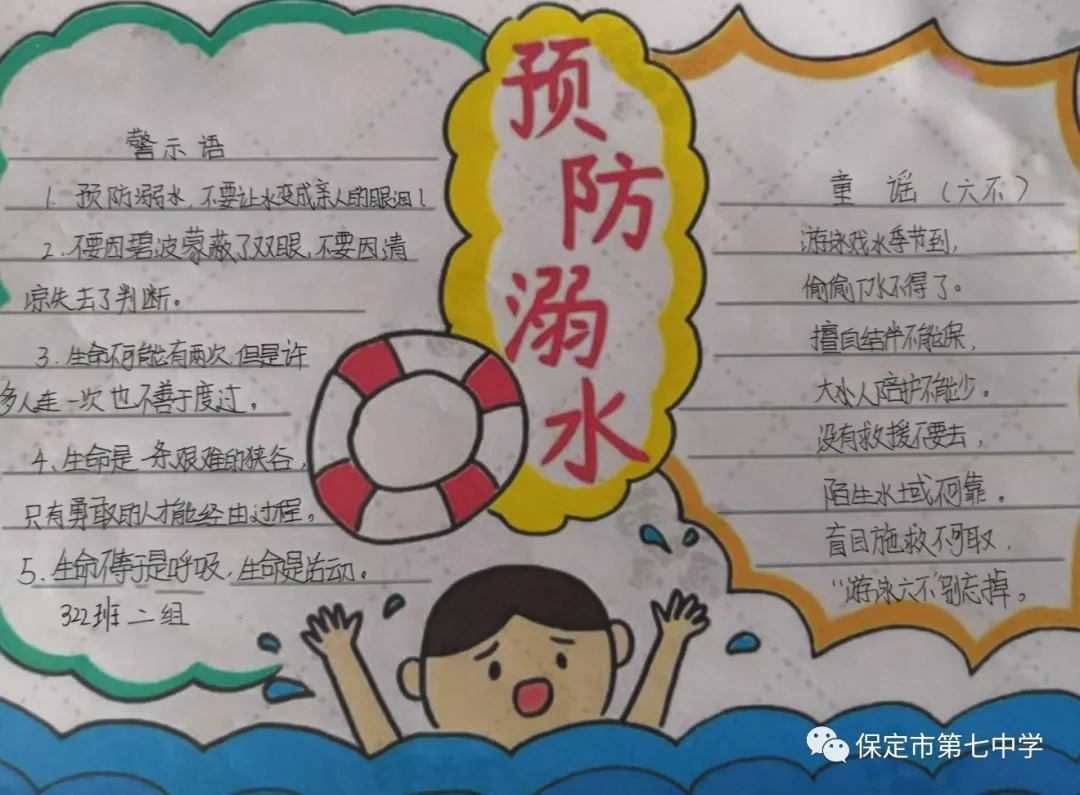 预防溺水
警示语
1. 预防溺水，不要让水变成亲人的眼泪！
2. 不要因碧波蒙蔽了双眼，不要因清
凉失去了判断。
3. 生命不可能有两次，但是许
多人连一次也不善于度过。
4、生命是一条艰难的狭谷，
只有勇敢的人才能经由过程。
5、生命不等于是呼吸，生命是活动。
322班二组
童谣（六不）
游泳戏水季节到，
偷偷下水不得了。
擅自结伴不能保，
大人陪护不能少。
没有救援不要去，
陌生水域不可靠。
盲目施救不可取，
“游泳六不”别忘掉。
保定市第七中学